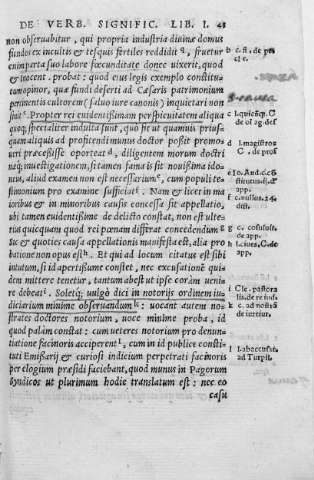 DE VERB. SIGNIFIC. LIB. I. 41
non obseruabitur, qui propria industria diuinæ domus
fundos ex incultis & tesquis fertiles reddidit a, fruetur
enim parta suo labore fœcunditate donec uixerit, quod
& iacent. probat: quod eius legis exemplo constitui
tamopinor, quæ fundi deserti ad Cæsaris patrimonium
pertinentis cultorem (saluo iure canonis) inquietari non
sinit c. Propter rei euidentißimam perspicuitatem aliqua
quoq; spectaliter indulta sunt, quo sit ut quamuis priusq̃
quam aliquis ad profitendi munus doctor possit promo-
ueri præceßisse oporteat d, diligentem morum doctri
næq; inuestigationem, si tamen fama is sit nobilißima ido-
neus, aliud examen non est necessarium e, cum populi te-
stimonium pro examine sufficiat f. Nam & licet in ma
ioribus & in minoribus causis concessa sit appellatio,
ubi tamen euidentißime de delicto constat, non est ulte-
tia quicquam quod rei pœnam differat concedendum g
sic & quoties causa appellationis manifesta est, alia pro
batione non opus est h. Et qui ad locum citatus est sibi
intutum, si id apertißime constet, nec excusatione qui
dem mittere tenetur, tantum abest ut ipse coràm ueni-
re debeat i. Soletq; uulgò dici in notorijs ordinem iu
diciarium minime obseruandum k: uocant autem no-
strates doctores notorium, uoce minime proba, id
quod palàm constat: cum ueteres notorium pro denun-
tiatione facinoris acciperent l, cum in id publice consti-
tuti Emissarij & curiosi indicium perpetrati facinoris
per elogium præsidi faciebant, quod munus in Pagorum
Syndicos ut plurimum hodie translatum est: nec eo
casu
b c. fi. de pe
c l. quicūq; C.
de ol. ag. def
d l. magistros
C. de prof
g c. cosuluit.
de app.
h l. eius, C. de
ap.
i Cle. pastora
k c. ad nostrā
de iureiur.
ad Turpil.